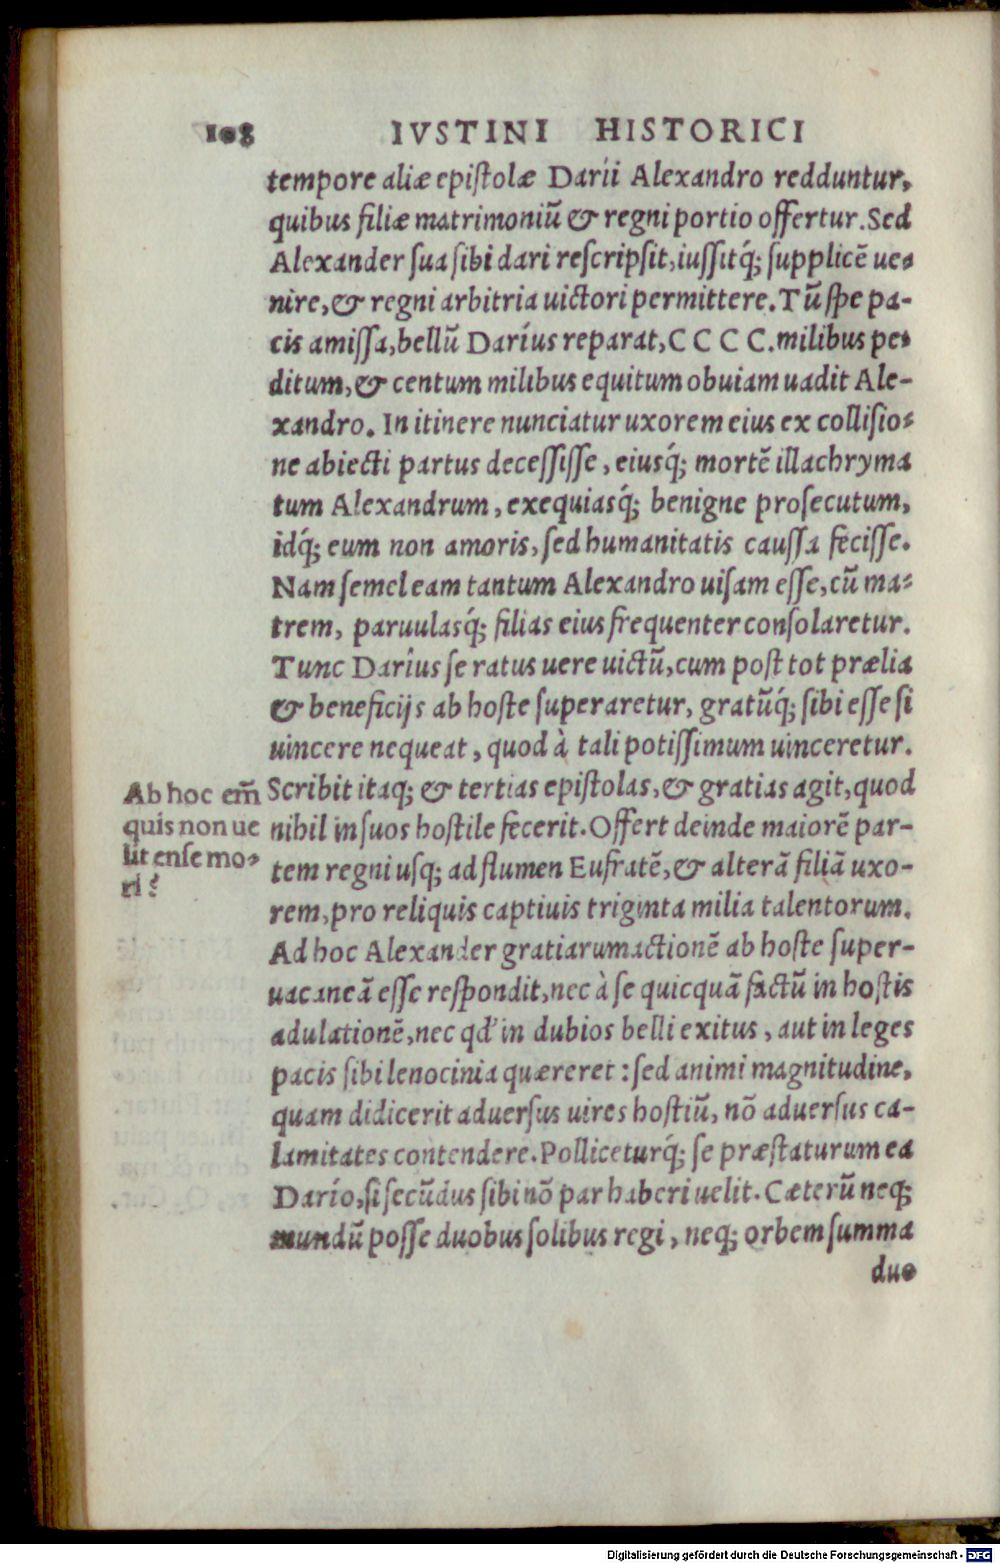 108 IVSTINI HISTORICI
tempore aliæ epiſtolæ Darii Alexandro redduntur,
quibus filiæ matrimoniũ & regni portio offertur. Sed
Alexander ſua ſibi dari reſcripſit, iuſſitq́; ſupplicẽ ue-
nire, & regni arbitria uictori permittere. Tũ ſpe pa-
cis amiſſa, bellũ Daríus reparat, C C C C. milibus pe-
ditum, & centum milibus equitum obuiam uadit Ale-
xandro. In itinere nunciatur uxorem eius ex colliſio-
ne abiecti partus deceſſiſſe, eiusq́; mortẽ illachryma
tum Alexandrum, exequiasq́; benigne proſecutum,
idq́; eum non amoris, ſed humanitatis cauſſa feciſſe.
Nam ſemel eam tantum Alexandro uiſam eſſe, cũ ma-
trem, paruulasq́; filias eius frequenter conſolaretur.
Tunc Daríus ſe ratus uere uictũ, cum poſt tot prælia
& beneficijs ab hoſte ſuperaretur, gratũq́; ſibi eſſe ſi
uincere nequeat, quod à tali potiſſimum uinceretur.
Scribit itaq; & tertias epiſtolas, & gratias agit, quod
nihil in ſuos hoſtile fecerit. Offert deinde maiorẽ par-
tem regni uſq; ad flumen Eufratẽ, & alterã filiã uxo-
rem, pro reliquis captiuis triginta milia talentorum.
Ad hoc Alexander gratiarum actionẽ ab hoſte ſuper-
uacaneã eſſe reſpondit, nec à ſe quicquã factũ in hoſtis
adulationẽ, nec qd' in dubios belli exitus, aut in leges
pacis ſibi lenocinia quæreret : ſed animi magnitudine,
quam didicerit aduerſus uires hoſtiũ, nõ aduerſus ca-
lamitates contendere. Polliceturq́; ſe præſtaturum ea
Darío, ſi ſecũdus ſibi nõ par haberi uelit. Cæterũ neq;
mundũ poſſe duobus ſolibus regi, neq; orbem ſumma
duo
Ab hoc em̃
quis non ue
lit enſe mo-
ri?
Digitalisierung gefördert durch die Deutsche Forschungsgemeinschaft - DFG